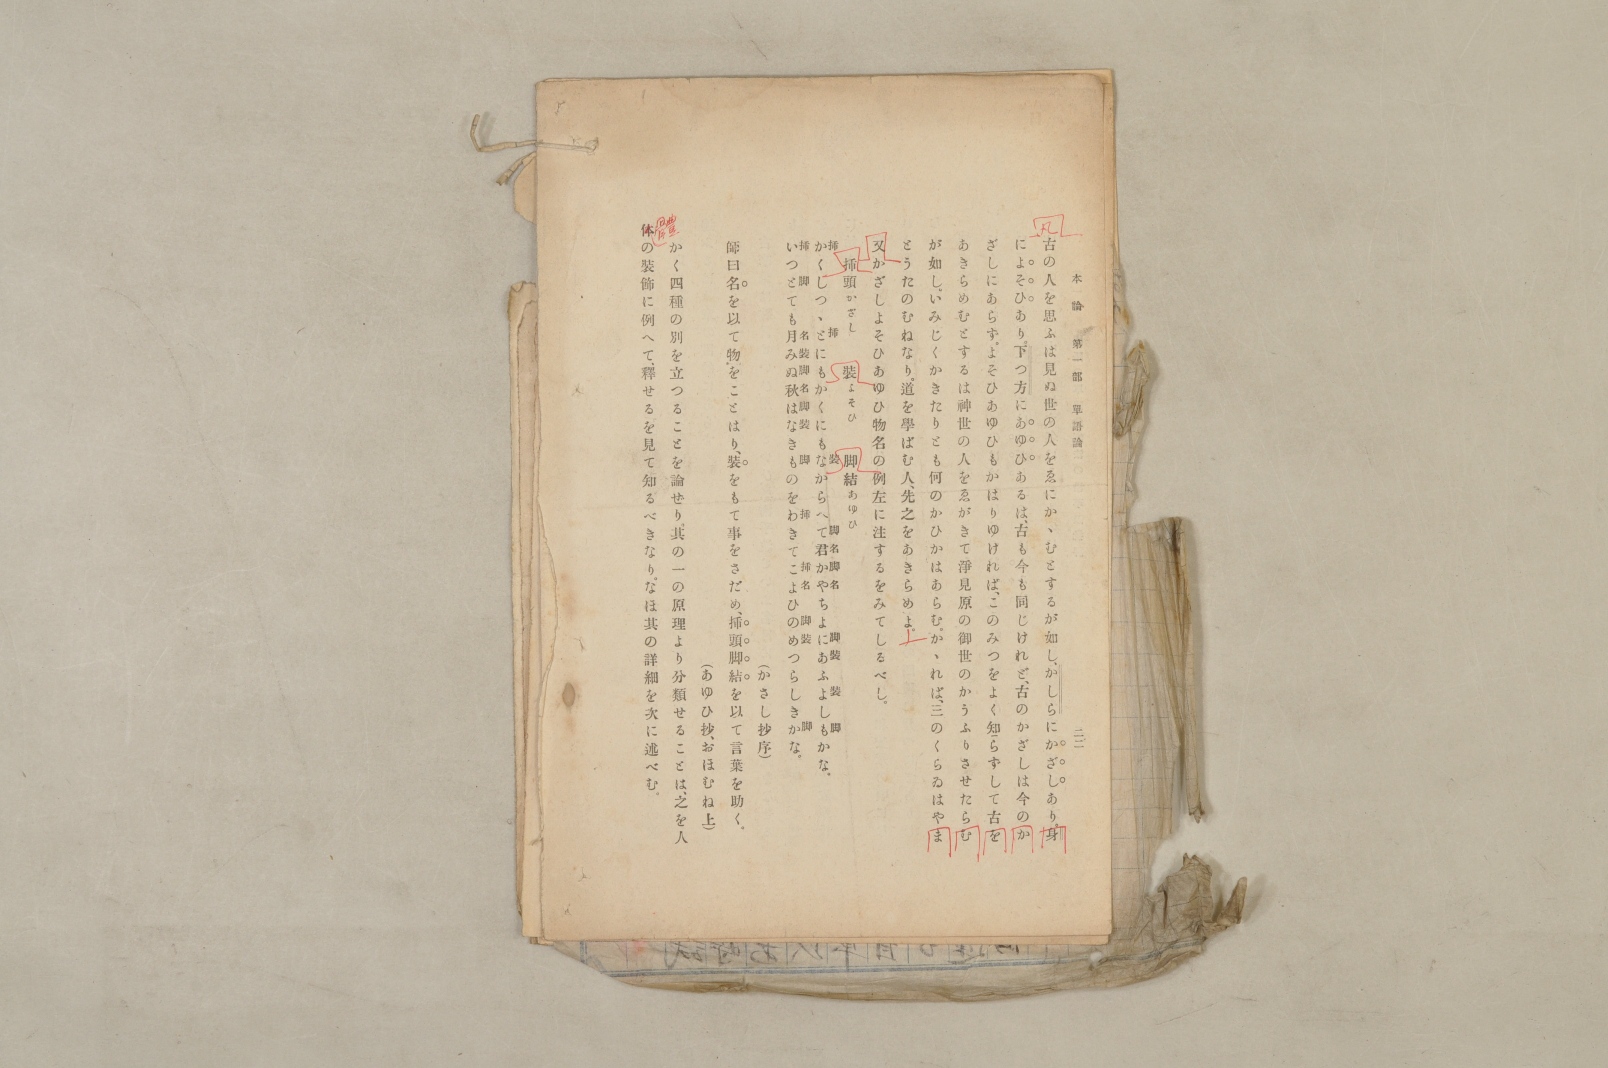 本論 第一部 單語論 二二
古の人を思ふは見ぬ世の人をゑにかゝむとするが如し、かしらにかざしあり、身
によそひあり、下つ方にあゆひあるは、古も今も同じけれど、古のかざしは今のか
ざしにあらず。よそひあゆひもかはりゆければ、このみつをよく知らずして古を
あきらめむとするは神世の人をゑがきて淨見原の御世のかうふりさせたらむ
が如し。いみじくかきたりとも何のかひかはあらむ。かゝれば、三のくらゐはやま
とうたのむねなり。道を學ばむ人、先之をあきらめよ。上
又かざしよそひあゆひ物名の例左に注するをみてしるべし。
挿頭かざし 裝よそひ 脚結あゆひ
挿 挿 裝 脚名脚名 脚裝 裝 脚
かくしつゝとにもかくにもなからへて君かやちよにあふよしもかな。
挿 脚 名裝脚名脚裝 脚 挿 挿名 脚裝 脚
いつとても月みぬ秋はなきものをわきてこよひのめつらしきかな。
(かさし抄序)
師曰名を以て物をことはり、裝をもて事をさだめ、挿頭脚結を以て言葉を助く。
(あゆひ抄、おほむね上)
かく四種の別を立つることを論せり。其の一の原理より分類せることは、之を人
体の裝飾に例へて、釋せるを見て知るべきなり。なほ其の詳細を次に述べむ。
體